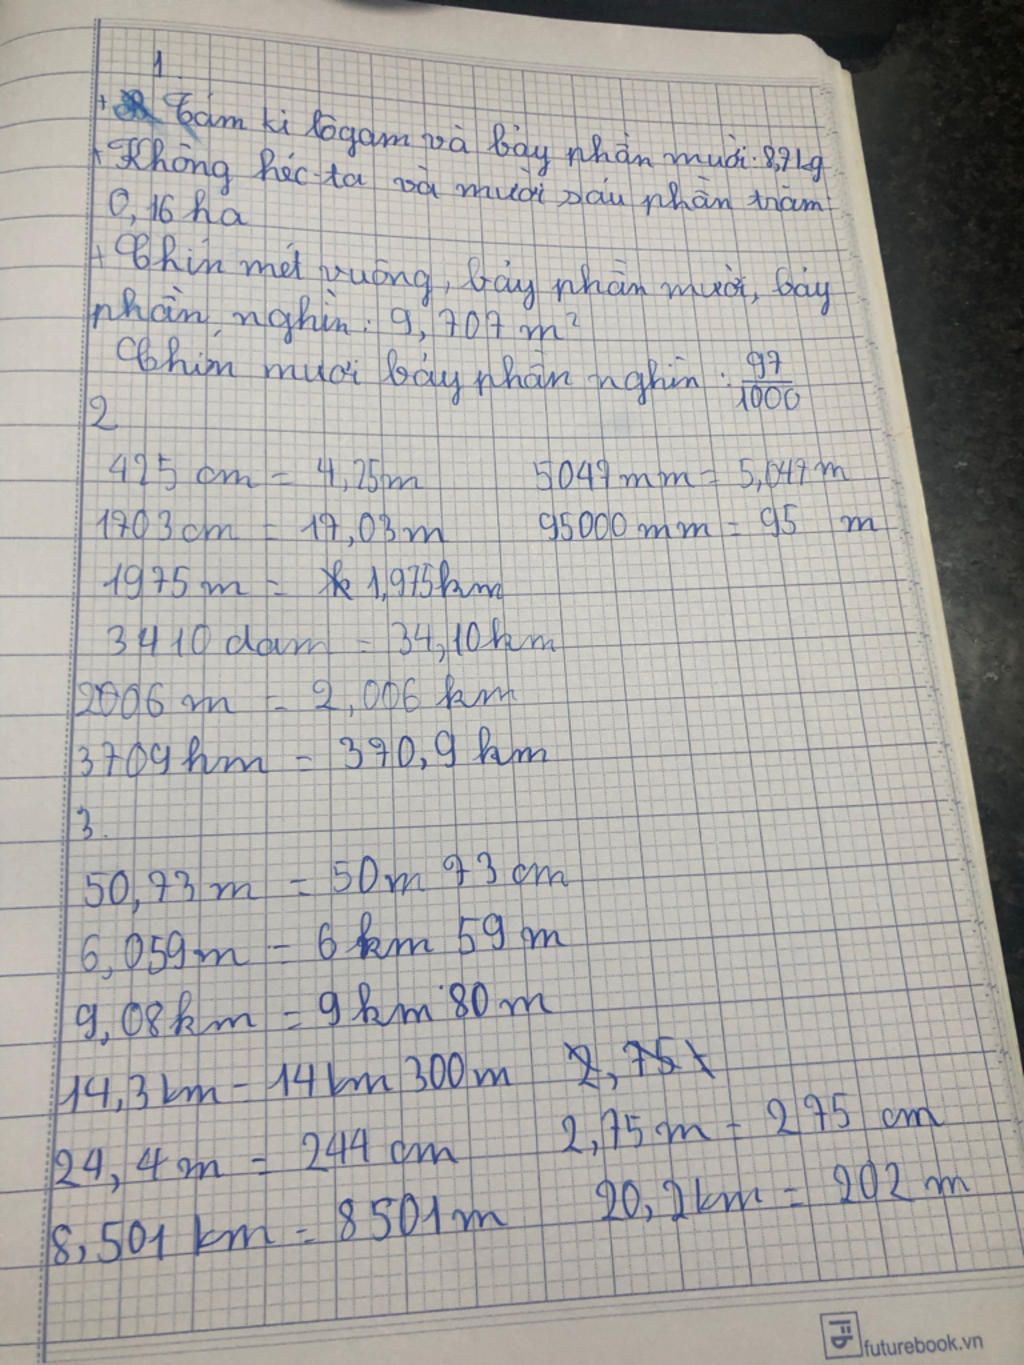 1.
+ Tám ki lôgam và bảy phần mười: 8,7kg
+ Không héc-ta và mười sáu phần trăm:
0,16 ha
+ Chín mét vuông, bảy phần mười, bảy
phần nghìn: 9,707 m²
Chín mươi bảy phần nghìn: 97/1000
2
425 cm = 4,25m 5047mm = 5,047m
1703cm = 17,03m 95000mm = 95 m
1975m = 1,975km
3410 dam = 34,10km
2006 m = 2,006 km
3709hm = 370,9 km
3.
50,73m = 50m 73cm
6,059m = 6km 59m
9,08km = 9km 80m
14,3km = 14km 300m 2,75
24,4m = 244cm 2,75m = 275 cm
8,501 km = 8501m 20,2km = 202m
futurebook.vn